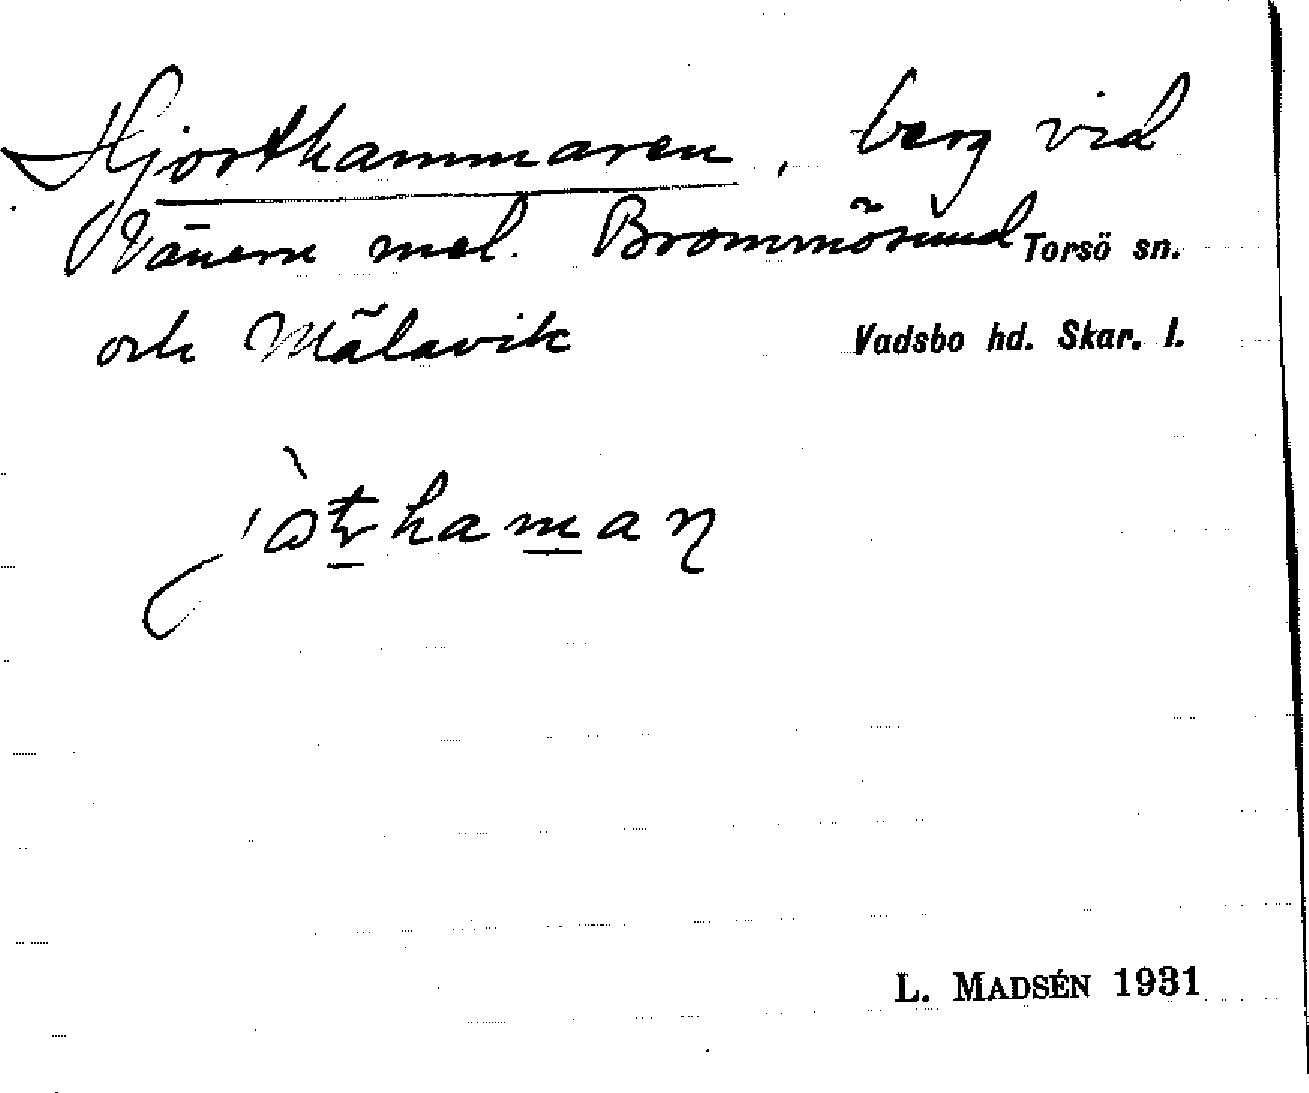 Hjorthammaren, berg vid
Vänern mel. Brommösund Torsö sn.
och Målavik Vadsbo hd. Skar. l.
L. MADSÉN 1931